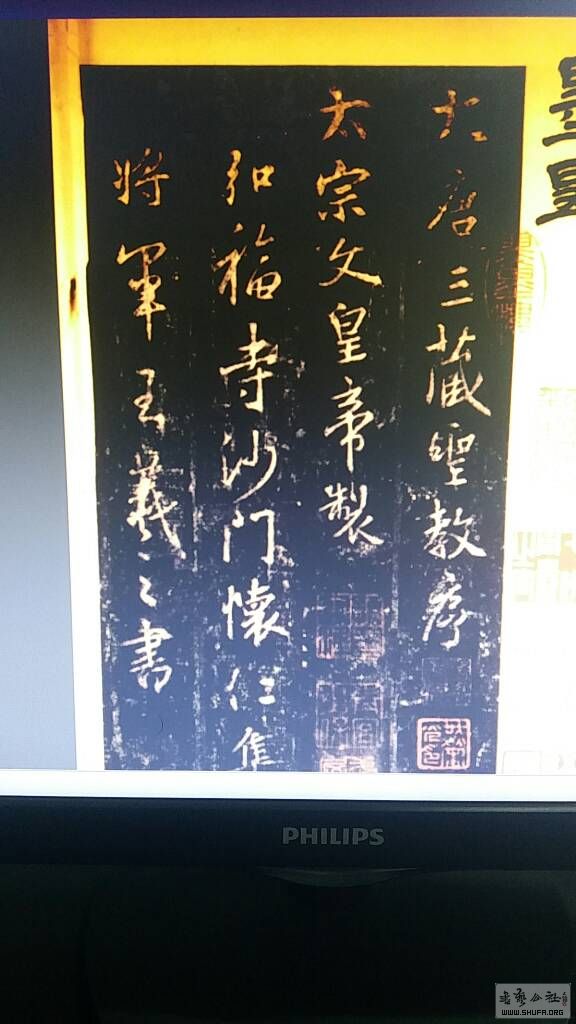 大唐三藏聖教序
太宗文皇帝製
弘福寺沙門懷仁集
將軍王羲之書
PHILIPS
書藝公社
WWW.SHUFA.ORG